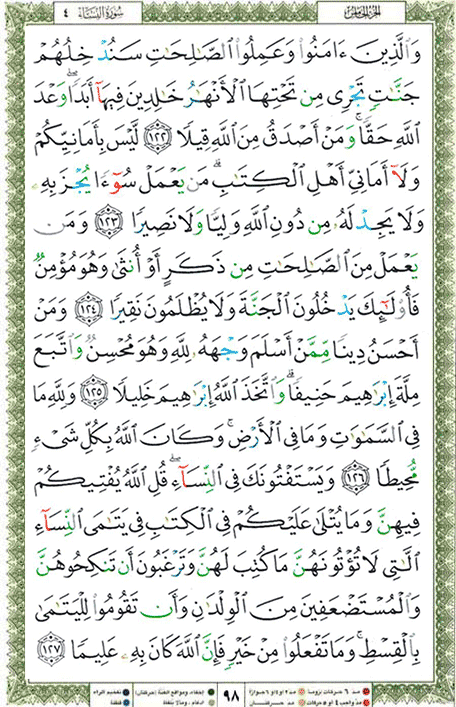 الجزء الخامس سورة النساء ٤
وَٱلَّذِينَ ءَامَنُوا۟ وَعَمِلُوا۟ ٱلصَّٰلِحَٰتِ سَنُدْخِلُهُمْ
جَنَّٰتٍ تَجْرِى مِن تَحْتِهَا ٱلْأَنْهَٰرُ خَٰلِدِينَ فِيهَآ أَبَدًا ۖ وَعْدَ
ٱللَّهِ حَقًّا ۚ وَمَنْ أَصْدَقُ مِنَ ٱللَّهِ قِيلًا ١٢٢ لَّيْسَ بِأَمَانِيِّكُمْ
وَلَآ أَمَانِىِّ أَهْلِ ٱلْكِتَٰبِ ۗ مَن يَعْمَلْ سُوٓءًا يُجْزَ بِهِۦ
وَلَا يَجِدْ لَهُۥ مِن دُونِ ٱللَّهِ وَلِيًّا وَلَا نَصِيرًا ١٢٣ وَمَن
يَعْمَلْ مِنَ ٱلصَّٰلِحَٰتِ مِن ذَكَرٍ أَوْ أُنثَىٰ وَهُوَ مُؤْمِنٌ
فَأُو۟لَٰٓئِكَ يَدْخُلُونَ ٱلْجَنَّةَ وَلَا يُظْلَمُونَ نَقِيرًا ١٢٤ وَمَنْ
أَحْسَنُ دِينًا مِّمَّنْ أَسْلَمَ وَجْهَهُۥ لِلَّهِ وَهُوَ مُحْسِنٌ وَٱتَّبَعَ
مِلَّةَ إِبْرَٰهِيمَ حَنِيفًا ۗ وَٱتَّخَذَ ٱللَّهُ إِبْرَٰهِيمَ خَلِيلًا ١٢٥ وَلِلَّهِ مَا
فِى ٱلسَّمَٰوَٰتِ وَمَا فِى ٱلْأَرْضِ ۚ وَكَانَ ٱللَّهُ بِكُلِّ شَىْءٍ
مُّحِيطًا ١٢٦ وَيَسْتَفْتُونَكَ فِى ٱلنِّسَآءِ ۖ قُلِ ٱللَّهُ يُفْتِيكُمْ
فِيهِنَّ وَمَا يُتْلَىٰ عَلَيْكُمْ فِى ٱلْكِتَٰبِ فِى يَتَٰمَى ٱلنِّسَآءِ
ٱلَّٰتِى لَا تُؤْتُونَهُنَّ مَا كُتِبَ لَهُنَّ وَتَرْغَبُونَ أَن تَنكِحُوهُنَّ
وَٱلْمُسْتَضْعَفِينَ مِنَ ٱلْوِلْدَٰنِ وَأَن تَقُومُوا۟ لِلْيَتَٰمَىٰ
بِٱلْقِسْطِ ۚ وَمَا تَفْعَلُوا۟ مِنْ خَيْرٍ فَإِنَّ ٱللَّهَ كَانَ بِهِۦ عَلِيمًا ١٢٧
٩٨